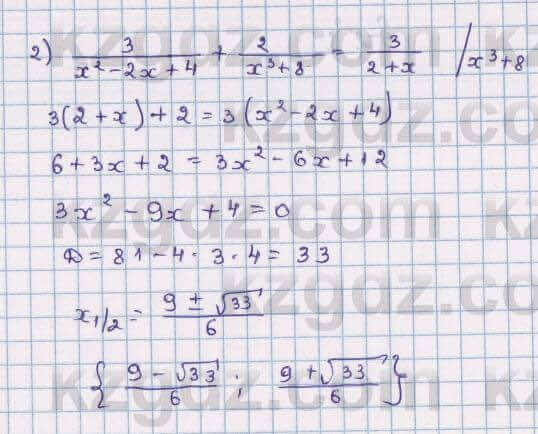 2) 3/(x² - 2x + 4) + 2/(x³ + 8) = 3/(2 + x) / x³ + 8
3(2 + x) + 2 = 3(x² - 2x + 4)
6 + 3x + 2 = 3x² - 6x + 12
3x² - 9x + 4 = 0
D = 81 - 4 · 3 · 4 = 33
x₁/₂ = (9 ± √33)/6
{ (9 - √33)/6 ; (9 + √33)/6 }
kzgdz.com